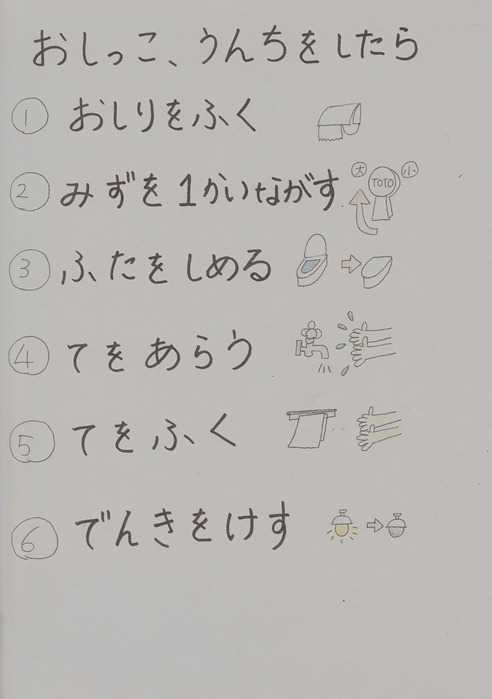 おしっこ、うんちをしたら
① おしりをふく
② みずを1かいながす
大 TOTO 小
③ ふたをしめる
④ てをあらう
⑤ てをふく
⑥ でんきをけす